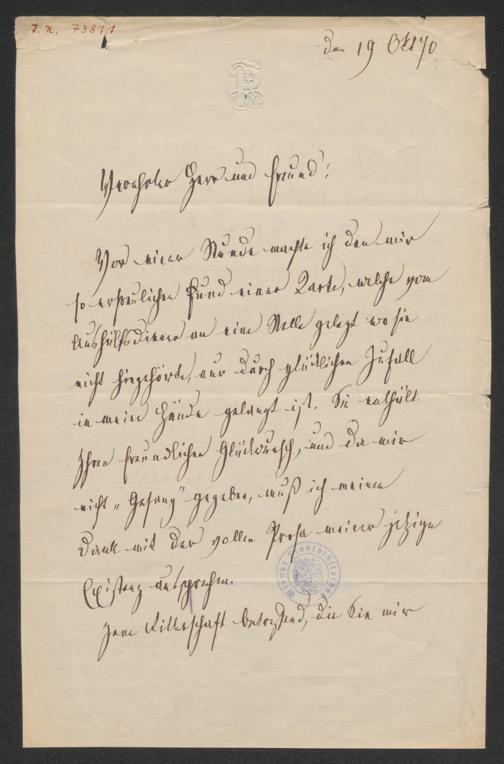 J. N. 73811
den 19 Okt 70
Verehrter Herr und Freund!
Vor einer Stunde machte ich den mir
so erfreulichen Fund einer Karte, welche vom
Aushülfsdiener an eine Stelle gelegt wo sie
nicht hingehörte, nur durch glücklichen Zufall
in meine Hände gelangt ist. Sie enthält
Ihren freundlichen Glückwunsch, und da mir
nicht „Gesang“ gegeben, muß ich meinen
Dank mit der vollen Prosa meiner jetzigen
Existenz aussprechen.
Jene Ritterschaft betreffend, die Sie mir